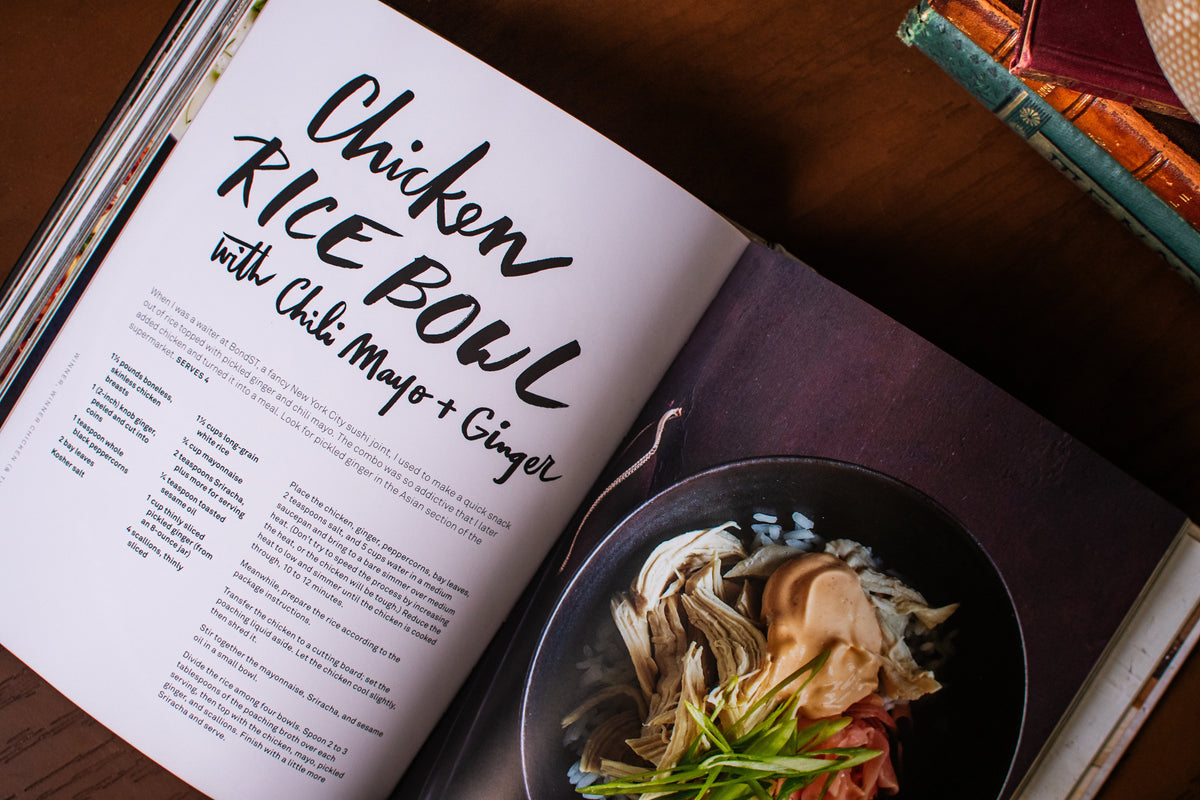 Chicken
RICE BOWL
with Chili Mayo + Ginger
When I was a waiter at BondST, a fancy New York City sushi joint, I used to make a quick snack
out of rice topped with pickled ginger and chili mayo. The combo was so addictive that I later
added chicken and turned it into a meal. Look for pickled ginger in the Asian section of the
supermarket. SERVES 4
1½ pounds boneless,
skinless chicken
breasts
1 (2-inch) knob ginger,
peeled and cut into
coins
1 teaspoon whole
black peppercorns
2 bay leaves
Kosher salt
1½ cups long-grain
white rice
cup mayonnaise
2 teaspoons Sriracha,
plus more for serving
teaspoon toasted
sesame oil
1 cup thinly sliced
pickled ginger (from
an 8-ounce jar)
4 scallions, thinly
sliced
Place the chicken, ginger, peppercorns, bay leaves,
2 teaspoons salt, and 5 cups water in a medium
saucepan and bring to a bare simmer over medium
heat. (Don't try to speed the process by increasing
the heat, or the chicken will be tough.) Reduce the
heat to low and simmer until the chicken is cooked
through, 10 to 12 minutes.
Meanwhile, prepare the rice according to the
package instructions.
Transfer the chicken to a cutting board; set the
poaching liquid aside. Let the chicken cool slightly,
then shred it.
Stir together the mayonnaise, Sriracha, and sesame
oil in a small bowl.
Divide the rice among four bowls. Spoon 2 to 3
tablespoons of the poaching broth over each
serving, then top with the chicken, mayo, pickled
ginger, and scallions. Finish with a little more
Sriracha and serve.
WINNER WINNER CHICKEN